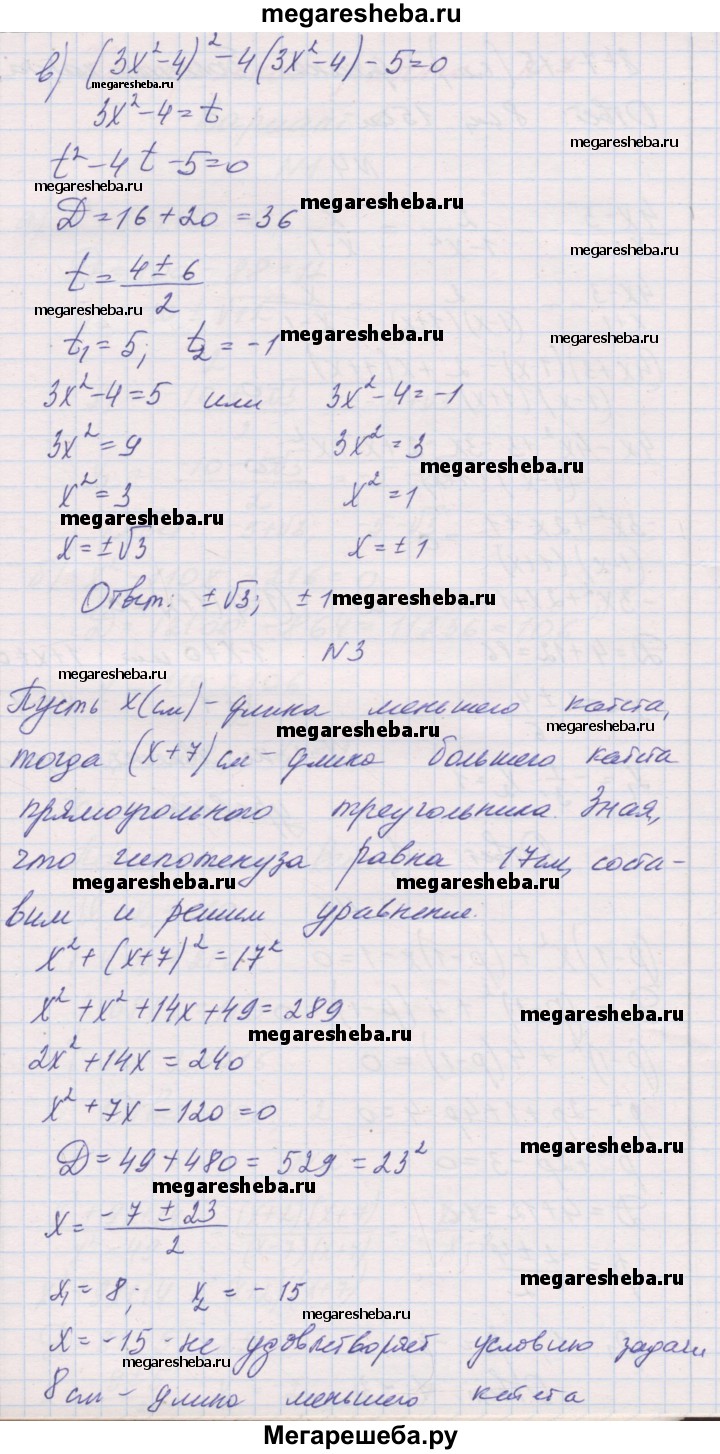 megaresheba.ru
в) (3x²-4)²-4(3x²-4)-5=0
megaresheba.ru
3x²-4=t
megaresheba.ru
t²-4t-5=0
megaresheba.ru
megaresheba.ru
D=16+20=36
megaresheba.ru
t=(4±6)/2
megaresheba.ru
megaresheba.ru
t₁=5; t₂=-1
3x²-4=5 или 3x²-4=-1
3x²=9 3x²=3
megaresheba.ru
x²=3 x²=1
megaresheba.ru
x=±√3 x=±1
Ответ: ±√3; ±1
megaresheba.ru
N3
megaresheba.ru
Пусть x(см)-длина меньшего катета,
megaresheba.ru
тогда (x+7)см-длина большего катета
прямоугольного треугольника. Зная,
что гипотенуза равна 17см, соста-
megaresheba.ru megaresheba.ru
вим и решим уравнение.
x²+(x+7)²=17²
x²+x²+14x+49=289
megaresheba.ru
megaresheba.ru
2x²+14x=240
x²+7x-120=0
megaresheba.ru
D=49+480=529=23²
megaresheba.ru
x=(-7±23)/2
megaresheba.ru
x₁=8; x₂=-15
megaresheba.ru
x=-15-не удовлетворяет условию задачи
megaresheba.ru
8см-длина меньшего катета
Мегарешеба.ру